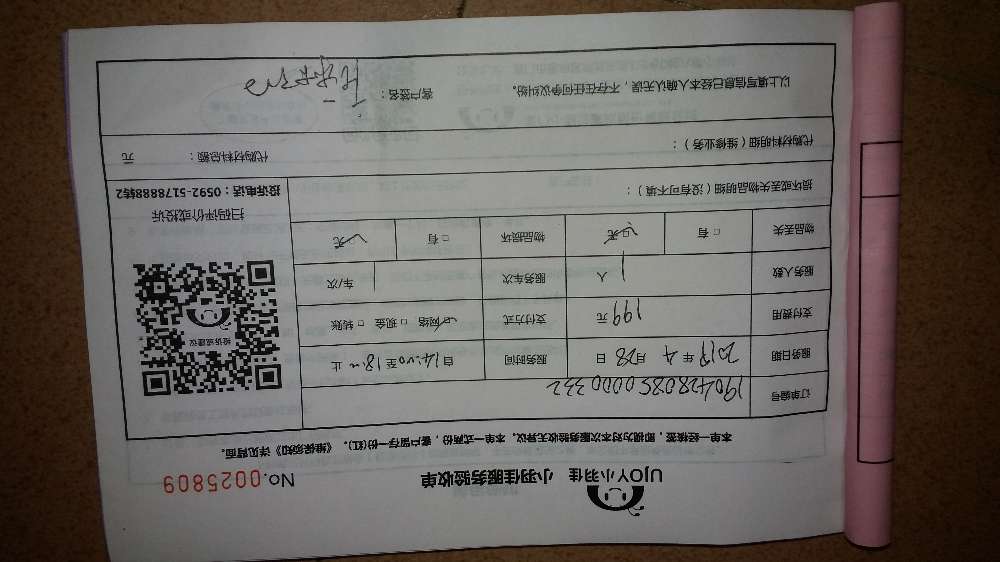 UJOY小羽佳 小羽佳服务验收单 No.0025809
本单一经核签，即视为对本次服务验收无异议。本单一式两份，客户留存一份(红)。《维保须知》详见背面。
订单编号 1904280850000332
服务日期 2019年4月28日 服务时间 自14:00至18:00止
支付费用 199元 支付方式 ☑网络 □现金 □转账
服务人数 1人 服务车次 1车/次
物品丢失 □有 ☑无 物品损坏 □有 ☑无
损坏或丢失物品明细（没有可不填）：
代购材料明细（维修业务）： 代购材料总额： 元
以上填写信息已经本人确认无误，不存在任何争议纠纷。 客户签名：
投诉或建议
扫码评价或投诉
投诉电话：0592-5178888转2